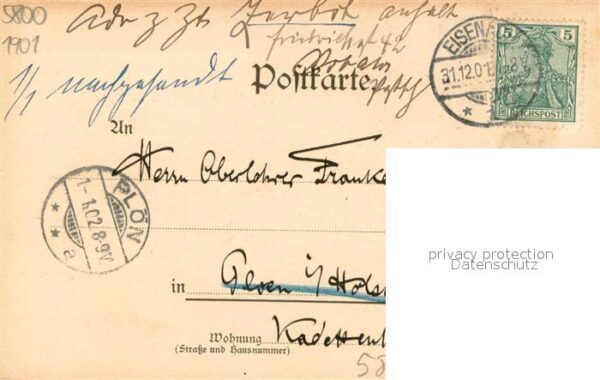 5800
1901
Adr z Zt Zerbst Anhalt
Friedrichstr 42
1/1 nachgesandt
Postkarte
EISENA
31.12.01
5 5
REICHSPOST
An
Herrn Oberlehrer Franke
PLÖN
1-1.02.8-9V
* * a
in Ploen i/Holst
Wohnung
(Straße und Hausnummer)
Kadetten
58
privacy protection
Datenschutz